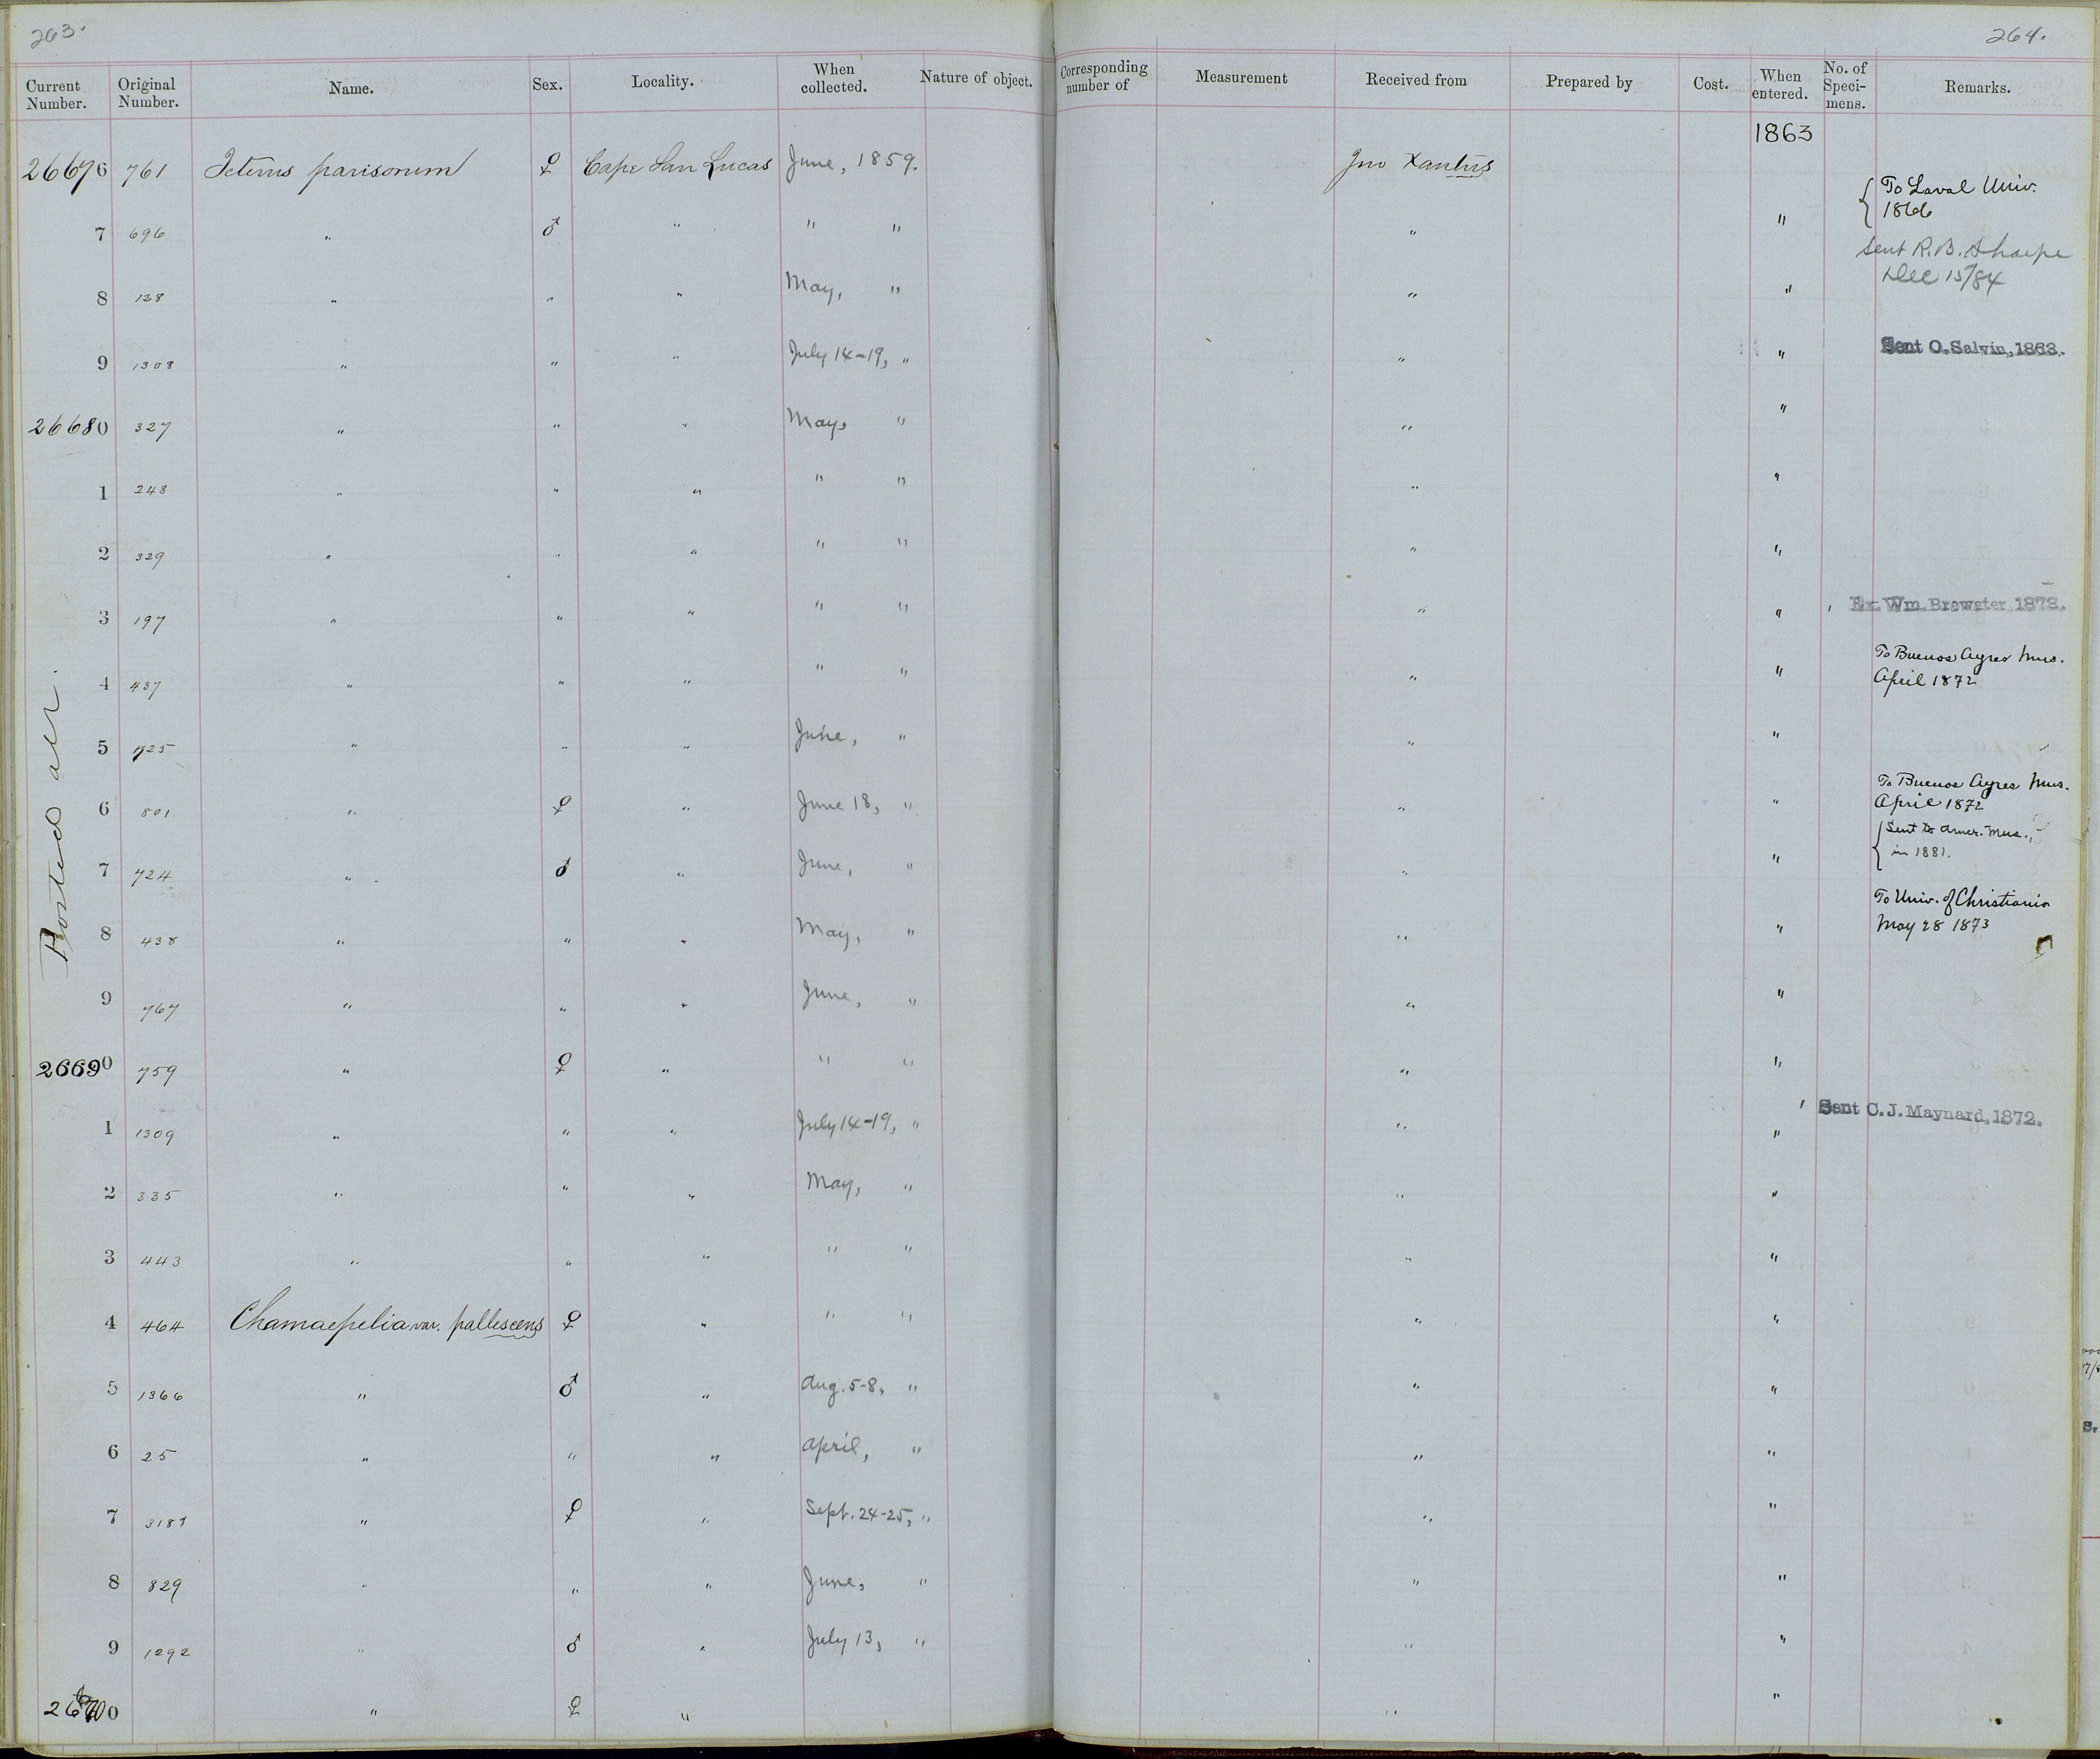 263.
264.
Current Number. Original Number. Name. Sex. Locality. When collected. Nature of object. Corresponding number of Measurement Received from Prepared by Cost. When entered. No. of Specimens. Remarks.
1863
26676 761 Icterus parisorum ♀ Cape San Lucas June, 1859. Jno Xantus
{ To Laval Univ. 1866
7 696 " ♂ " " " " "
Sent R. B. Sharpe Dec 15/84
8 128 " " " May, " " "
9 1308 " " " July 14-19, " " " Sent O. Salvin, 1863.
26680 327 " " " May, " " "
1 248 " " " " " " "
2 329 " " " " " " "
3 197 " " " " " " " Ex. Wm. Brewster, 1878.
4 437 " " " " " " " To Buenos Ayres Mus. April 1872
5 725 " " " June, " " "
6 801 " ♀ " June 18, " " " To Buenos Ayres Mus. April 1872
7 724 " ♂ " June, " " " { Sent to Amer. Mus., in 1881.
8 438 " " " May, " " " To Univ. of Christiania May 28 1873
9 767 " " " June, " " "
26690 759 " ♀ " " " " "
1 1309 " " " July 14-19, " " " Sent C. J. Maynard, 1872.
2 335 " " " May, " " "
3 443 " " " " " " "
4 464 Chamaepelia var. pallescens ♀ " " " " "
5 1366 " ♂ " Aug. 5-8, " " "
6 25 " " " April, " " "
7 " ♀ " Sept. 24-25, " " "
8 829 " " " June, " " "
9 1292 " ♂ " July 13, " " "
26700 " ♀ " " "
Posted all.